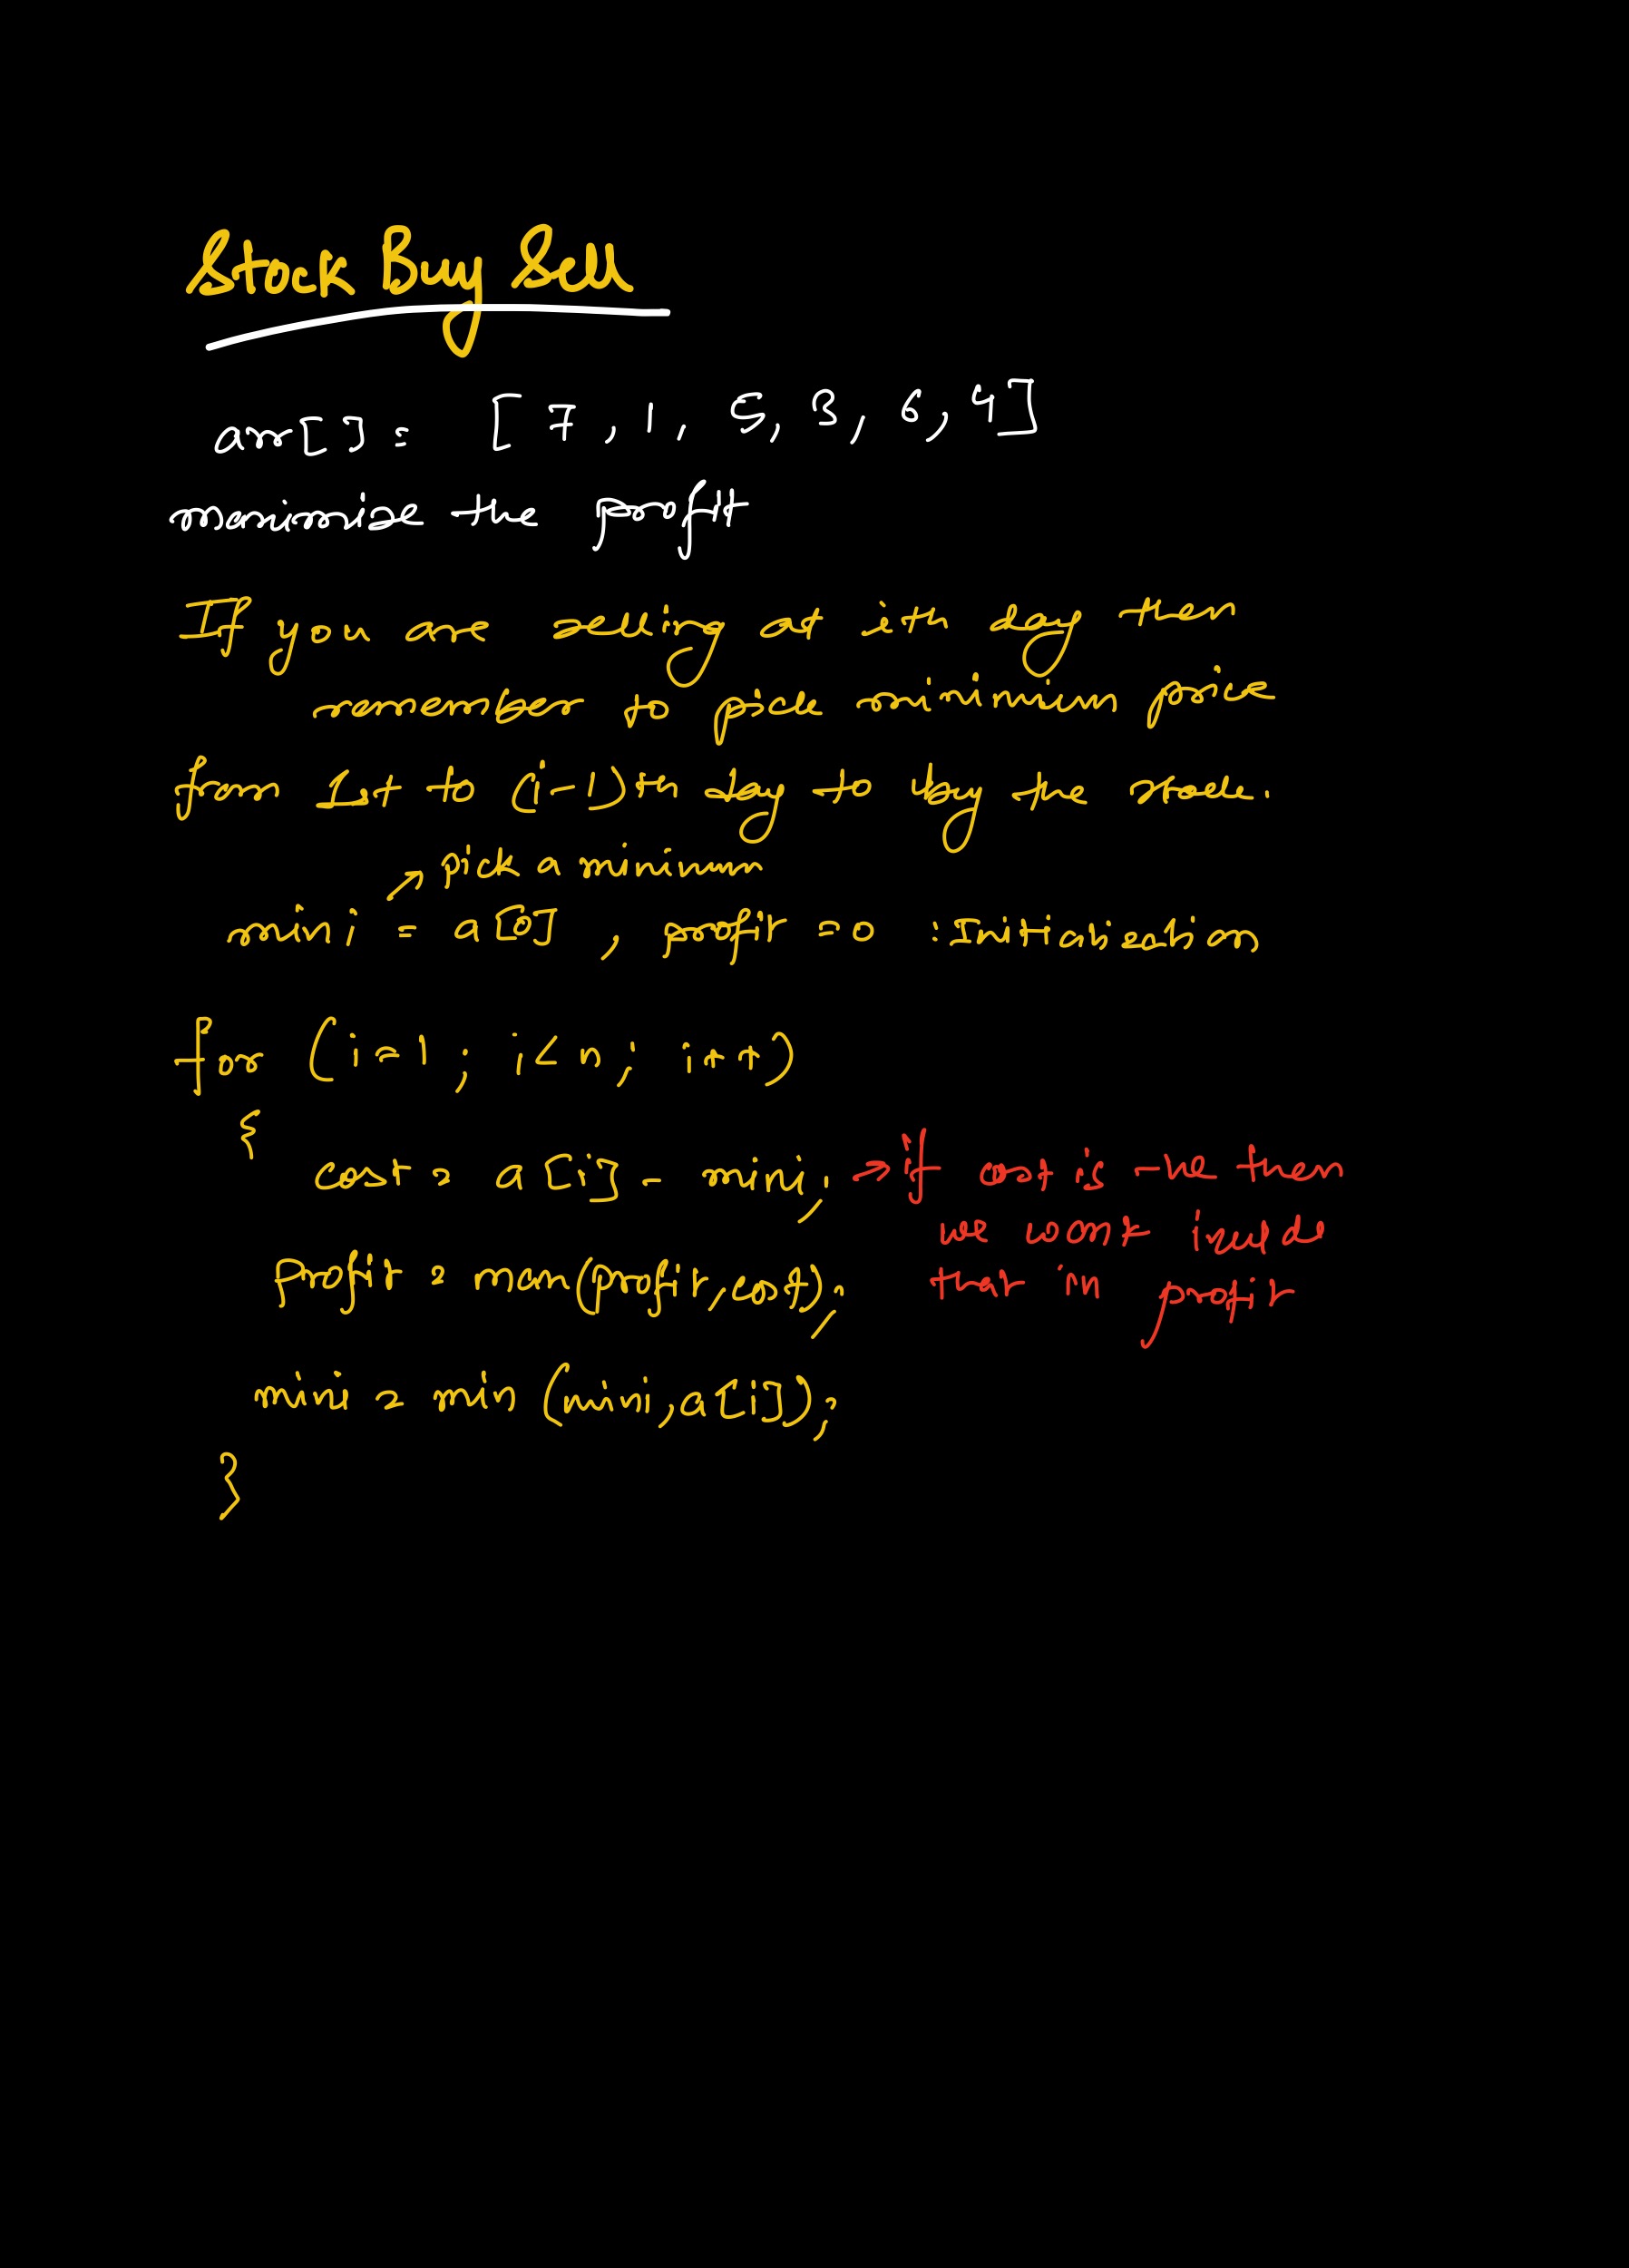 Stock Buy Sell
arr[] = [7, 1, 5, 3, 6, 4]
maximise the profit
If you are selling at ith day then
remember to pick minimum price
from 1st to (i-1)th day to buy the stock.
→ pick a minimum
mini = a[0], profit = 0 : Initialization
for (i=1; i<n; i++)
{
cost = a[i] - mini; → if cost is -ve then
we wont inculde
that in profit
profit = max(profit, cost);
mini = min (mini, a[i]);
}